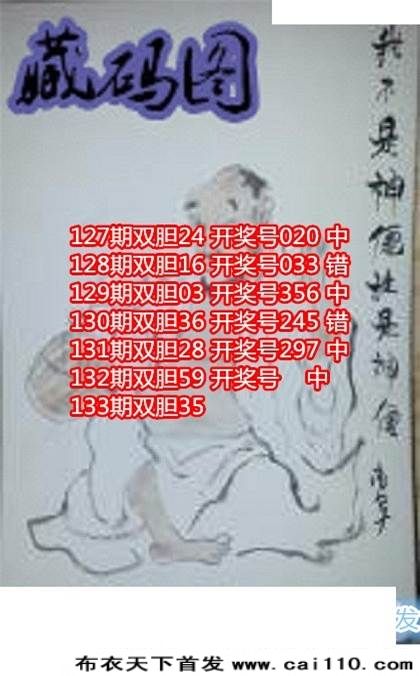 藏码图
我不是神僊谁是神僊
127期双胆24 开奖号020 中
128期双胆16 开奖号033 错
129期双胆03 开奖号356 中
130期双胆36 开奖号245 错
131期双胆28 开奖号297 中
132期双胆59 开奖号 中
133期双胆35
发
布衣天下首发 www.cai110.com